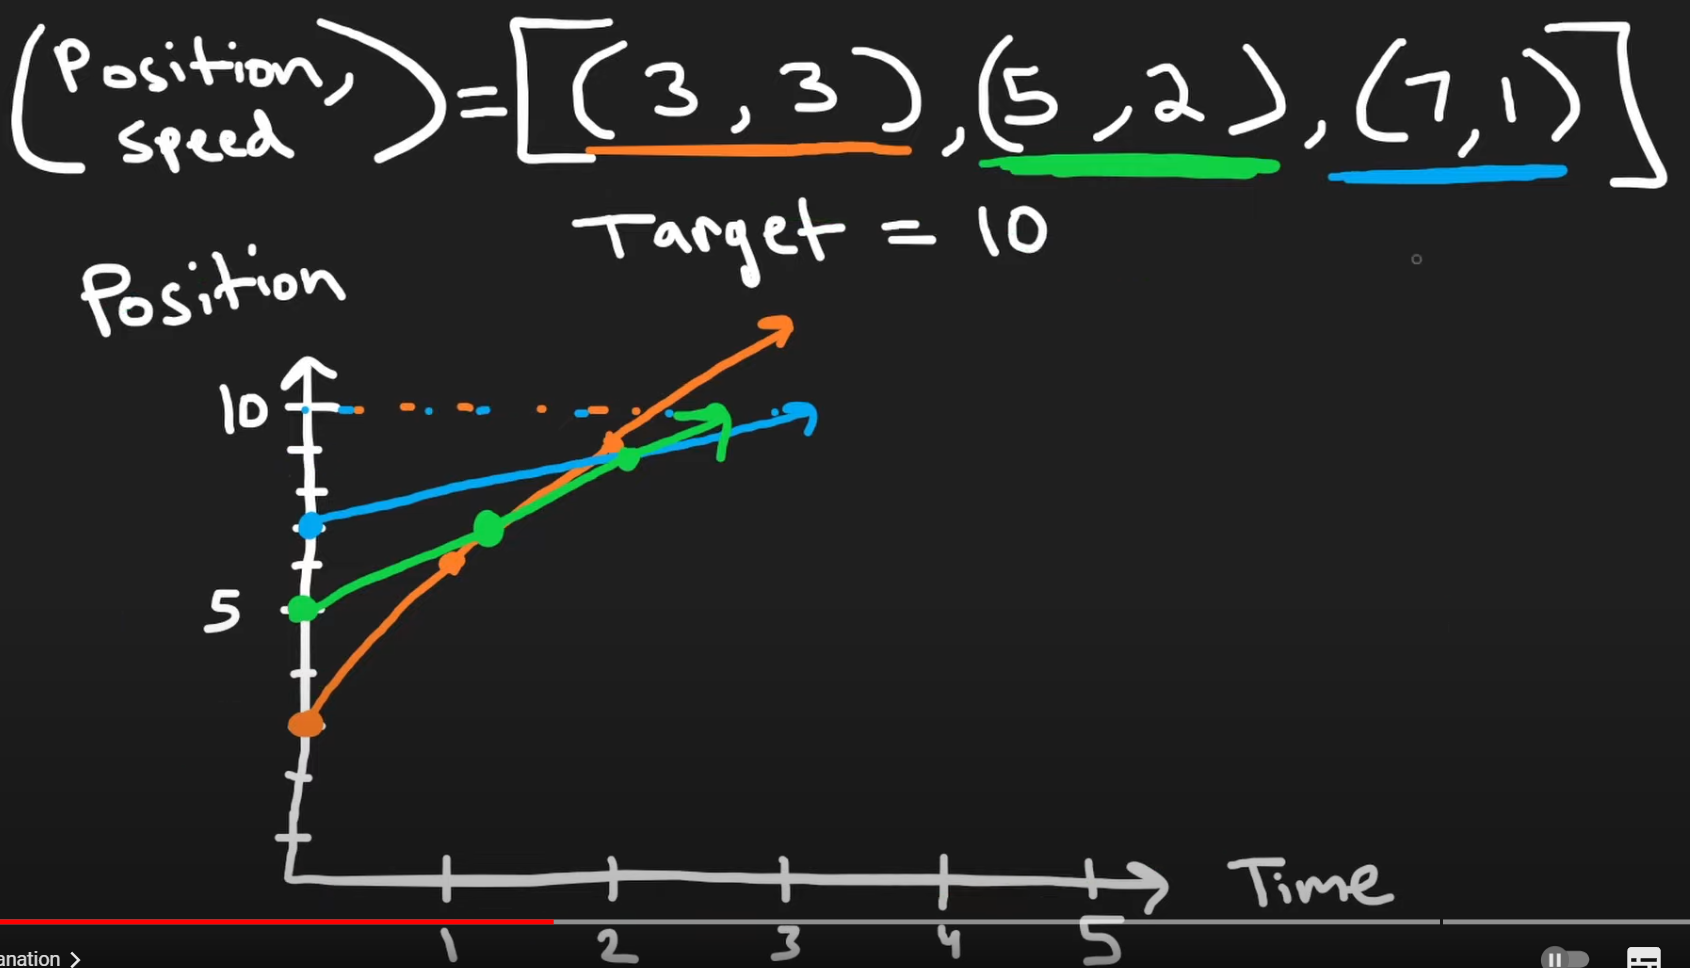 (Position, speed) = [(3, 3), (5, 2), (7, 1)]
Target = 10
Position
10
5
Time
1 2 3 4 5
anation >